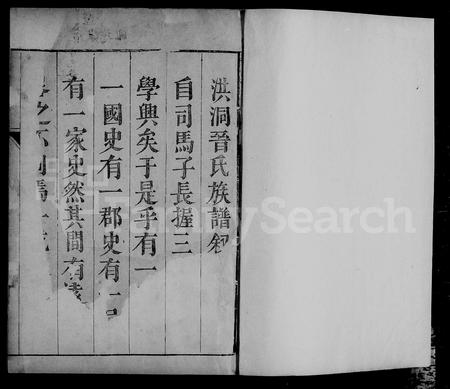 洪洞晉氏族譜敘
自司馬子長握三
學興矣于是乎有一
一國史有一郡史有一
有一家史然其間有
FamilySearch